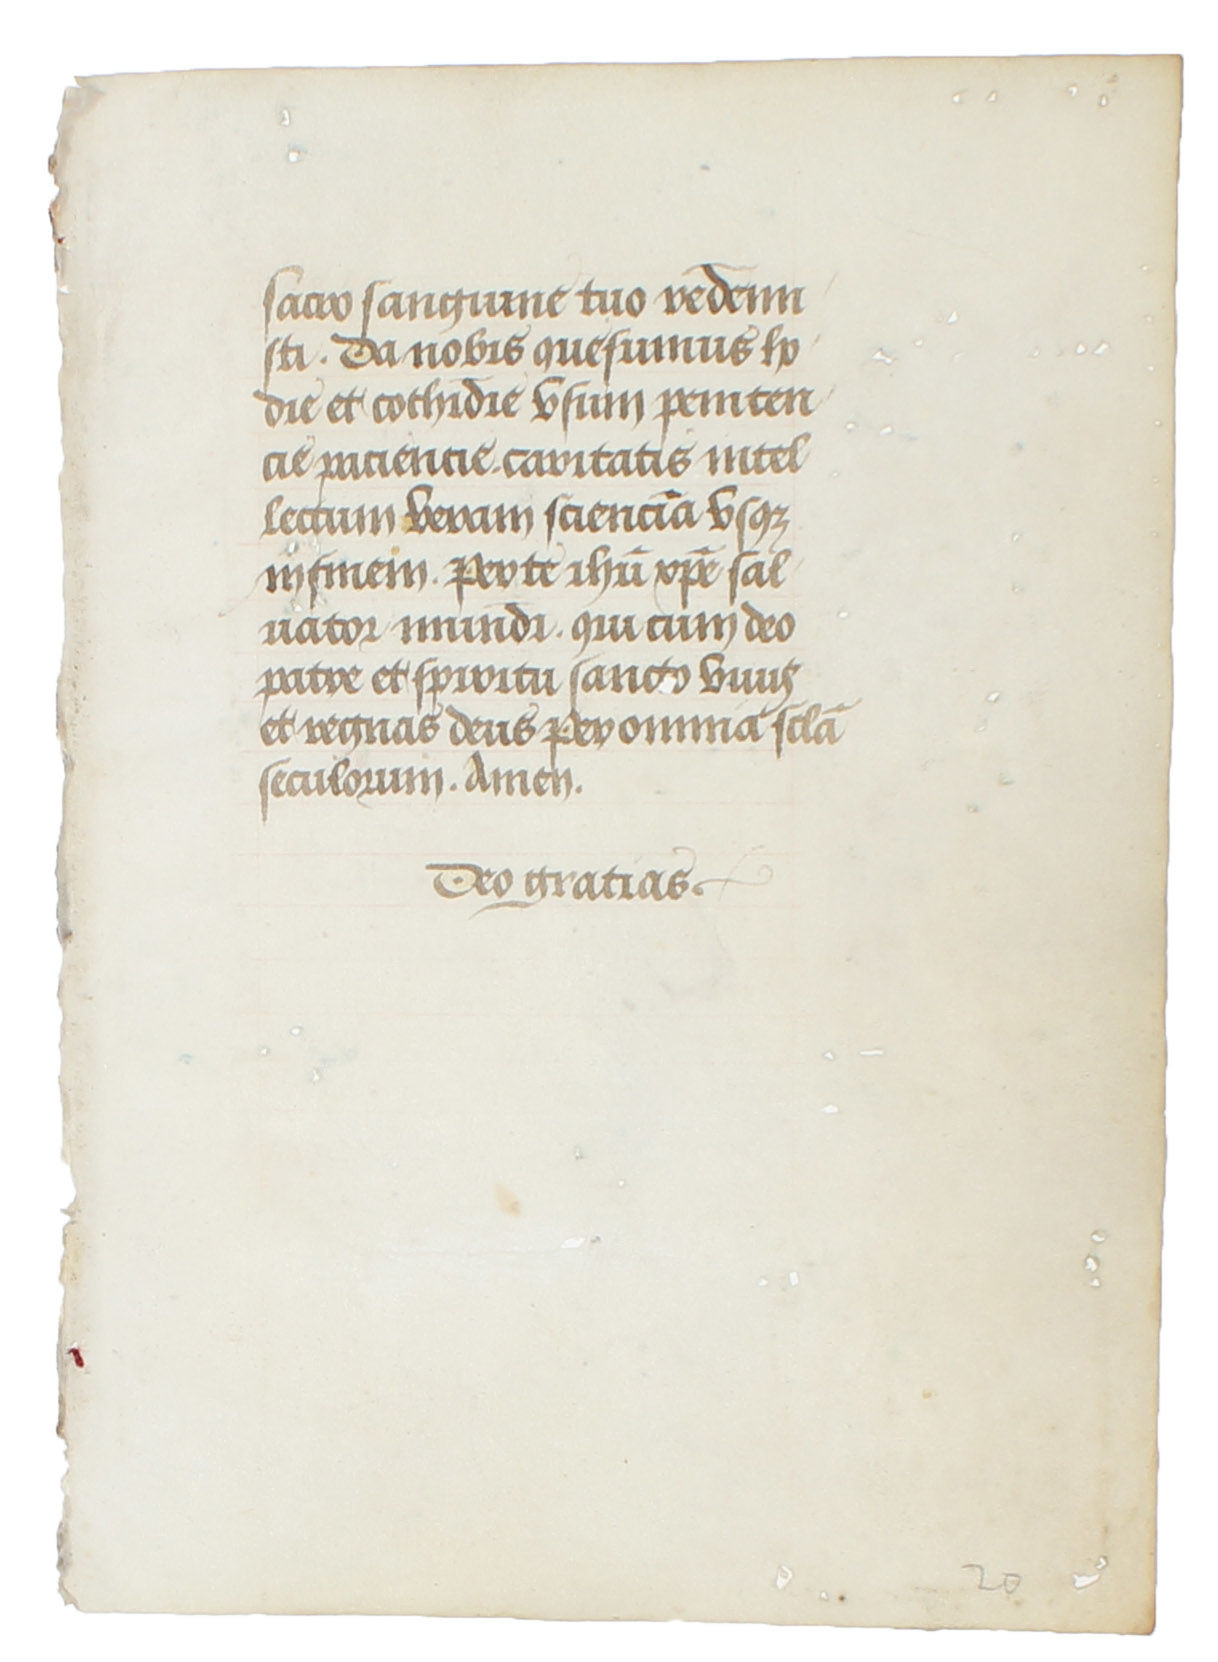 sacro sanguine tuo redemi
sti. Da nobis quesumus ho
die et cothidie vsum peniten
cie paciencie. caritatis intel
lectum veram scienciā vsqꝫ
in finem. Per te ihū xp̄e sal
uator mundi. qui cum deo
patre et spiritu sancto viuis
et regnas deus per omnia sclā
seculorum. Amen.
Deo gratias.
20